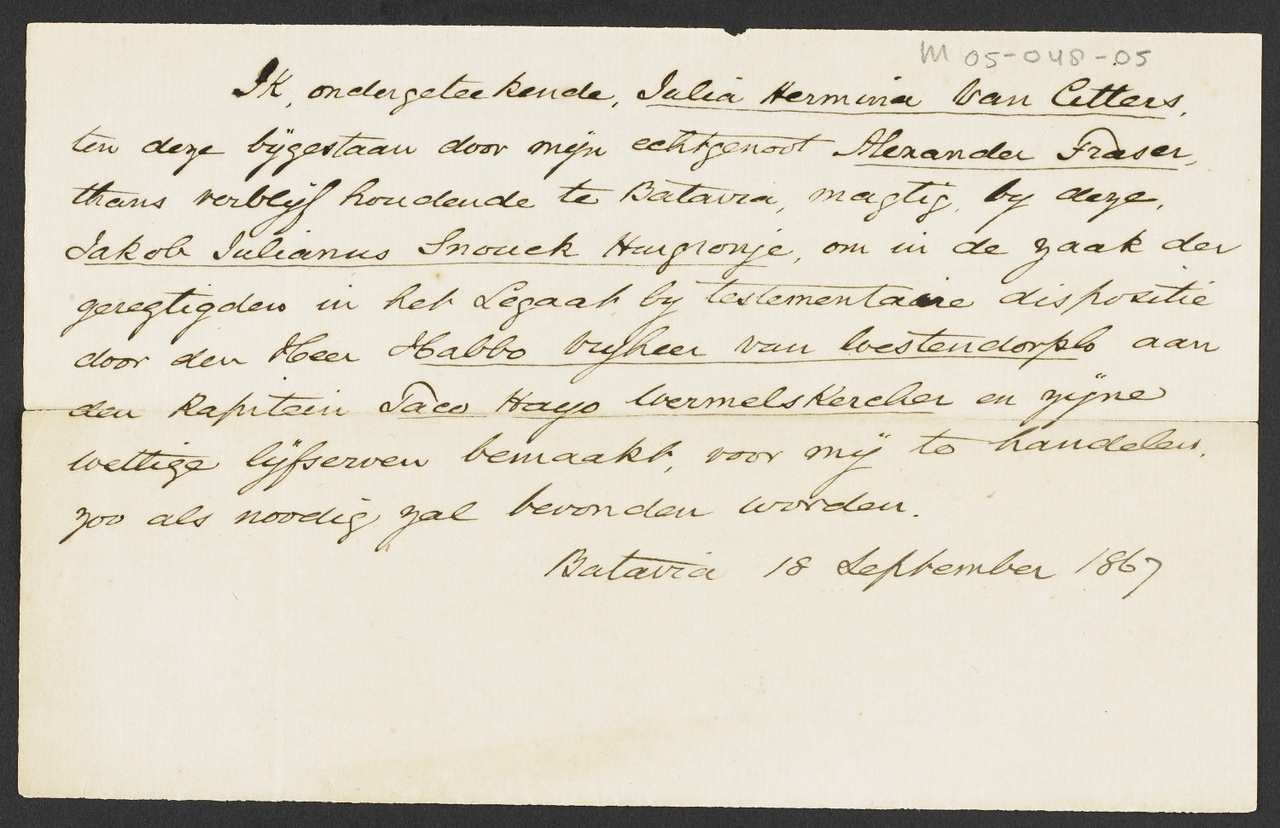 M 05-048-05
Ik, ondergeteekende, Julia Hermina Van Citters,
ten deze bijgestaan door mijn echtgenoot Alexander Fraser,
thans verblijf houdende te Batavia, magtig, by deze,
Jakob Julianus Snouck Hurgronje, om in de zaak der
geregtigden in het Legaat by testementaire dispositie
door den Heer Habbo Vryheer van Westendorph aan
den Kapitein Taco Hayo Wermelskercher en zijne
wettige lijfserven bemaakt, voor mij te handelen,
zoo als noodig zal bevonden worden.
Batavia 18 September 1867